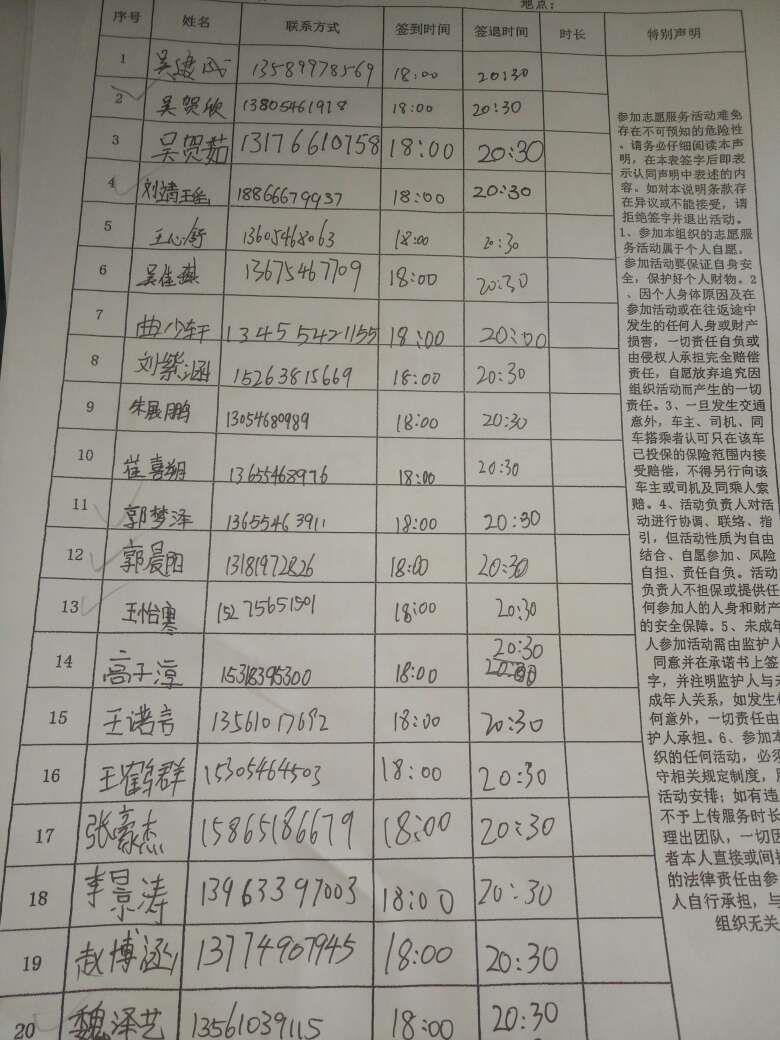 地点：
序号 姓名 联系方式 签到时间 签退时间 时长 特别声明
1 吴 13589978569 18:00 20:30
2 吴贺欣 13805461918 18:00 20:30
3 吴贺茹 13176610758 18:00 20:30
4 刘靖 18866679937 18:00 20:30
5 王心舒 13605468063 18:00 20:30
6 吴佳 13675467709 18:00 20:30
7 曲少轩 13455421155 18:00 20:00
8 刘紫涵 15263815669 18:00 20:30
9 朱展鹏 13054680989 18:00 20:30
10 崔喜翔 13655468976 18:00 20:30
11 郭梦泽 13655463911 18:00 20:30
12 郭晨阳 13181972826 18:00 20:30
13 王怡 15275651501 18:00 20:30
14 高子淳 15318395300 18:00 20:30
15 王诺言 13561017692 18:00 20:30
16 王鹤群 15305464503 18:00 20:30
17 张豪杰 15865186679 18:00 20:30
18 李景涛 13963397003 18:00 20:30
19 赵博涵 13774907945 18:00 20:30
20 魏泽艺 13561039115 18:00 20:30
参加志愿服务活动难免
存在不可预知的危险性
，请务必仔细阅读本声
明，在本表签字后即表
示认同声明中表述的内
容。如对本说明条款存
在异议或不能接受，请
拒绝签字并退出活动。
1、参加本组织的志愿服
务活动属于个人自愿，
参加活动要保证自身安
全，保护好个人财物。2
、因个人身体原因及在
参加活动或在往返途中
发生的任何人身或财产
损害，一切责任自负或
由侵权人承担完全赔偿
责任，自愿放弃追究因
组织活动而产生的一切
责任。3、一旦发生交通
意外，车主、司机、同
车搭乘者认可只在该车
已投保的保险范围内接
受赔偿，不得另行向该
车主或司机及同乘人索
赔。4、活动负责人对活
动进行协调、联络、指
引，但活动性质为自由
结合、自愿参加、风险
自担、责任自负。活动
负责人不担保或提供任
何参加人的人身和财产
的安全保障。5、未成年
人参加活动需由监护人
同意并在承诺书上签
字，并注明监护人与未
成年人关系，如发生任
何意外，一切责任由
护人承担。6、参加本
织的任何活动，必须
守相关规定制度，
活动安排；如有违
不予上传服务时长
理出团队，一切因
者本人直接或间接
的法律责任由参
人自行承担，与
组织无关